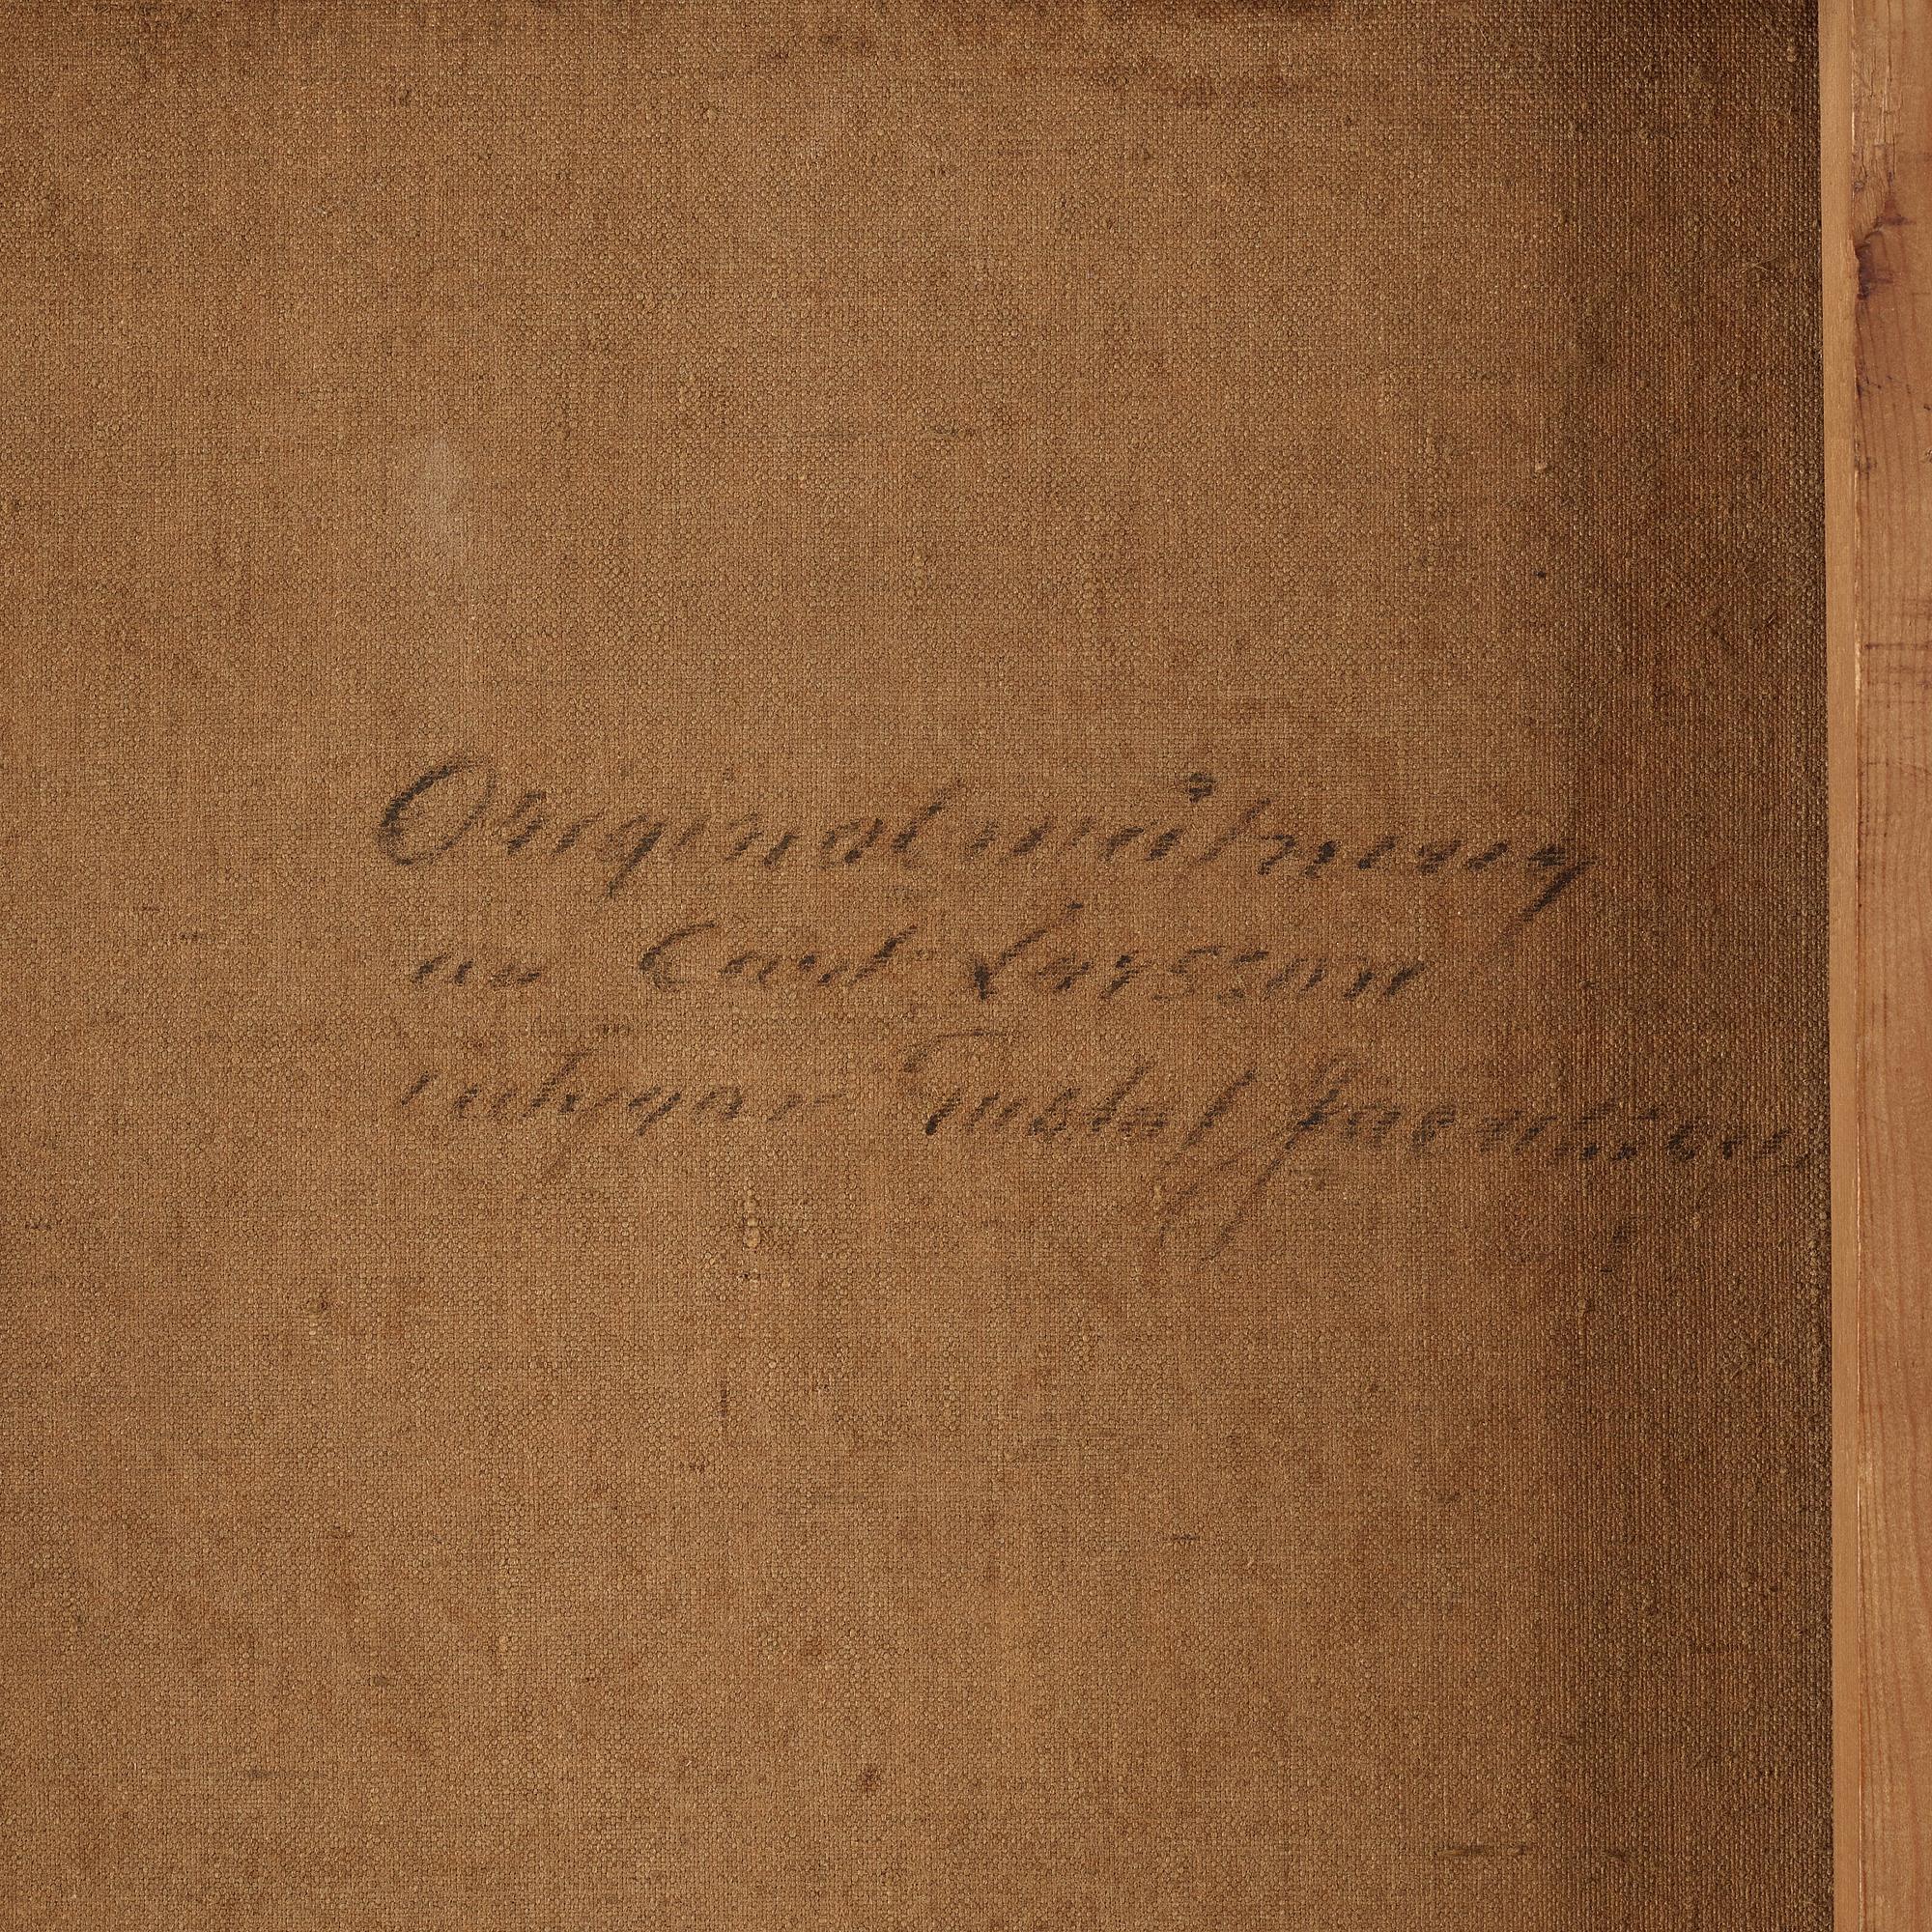 Originalmålning
av Carl Larsson
intygar Gustaf Jacobsson